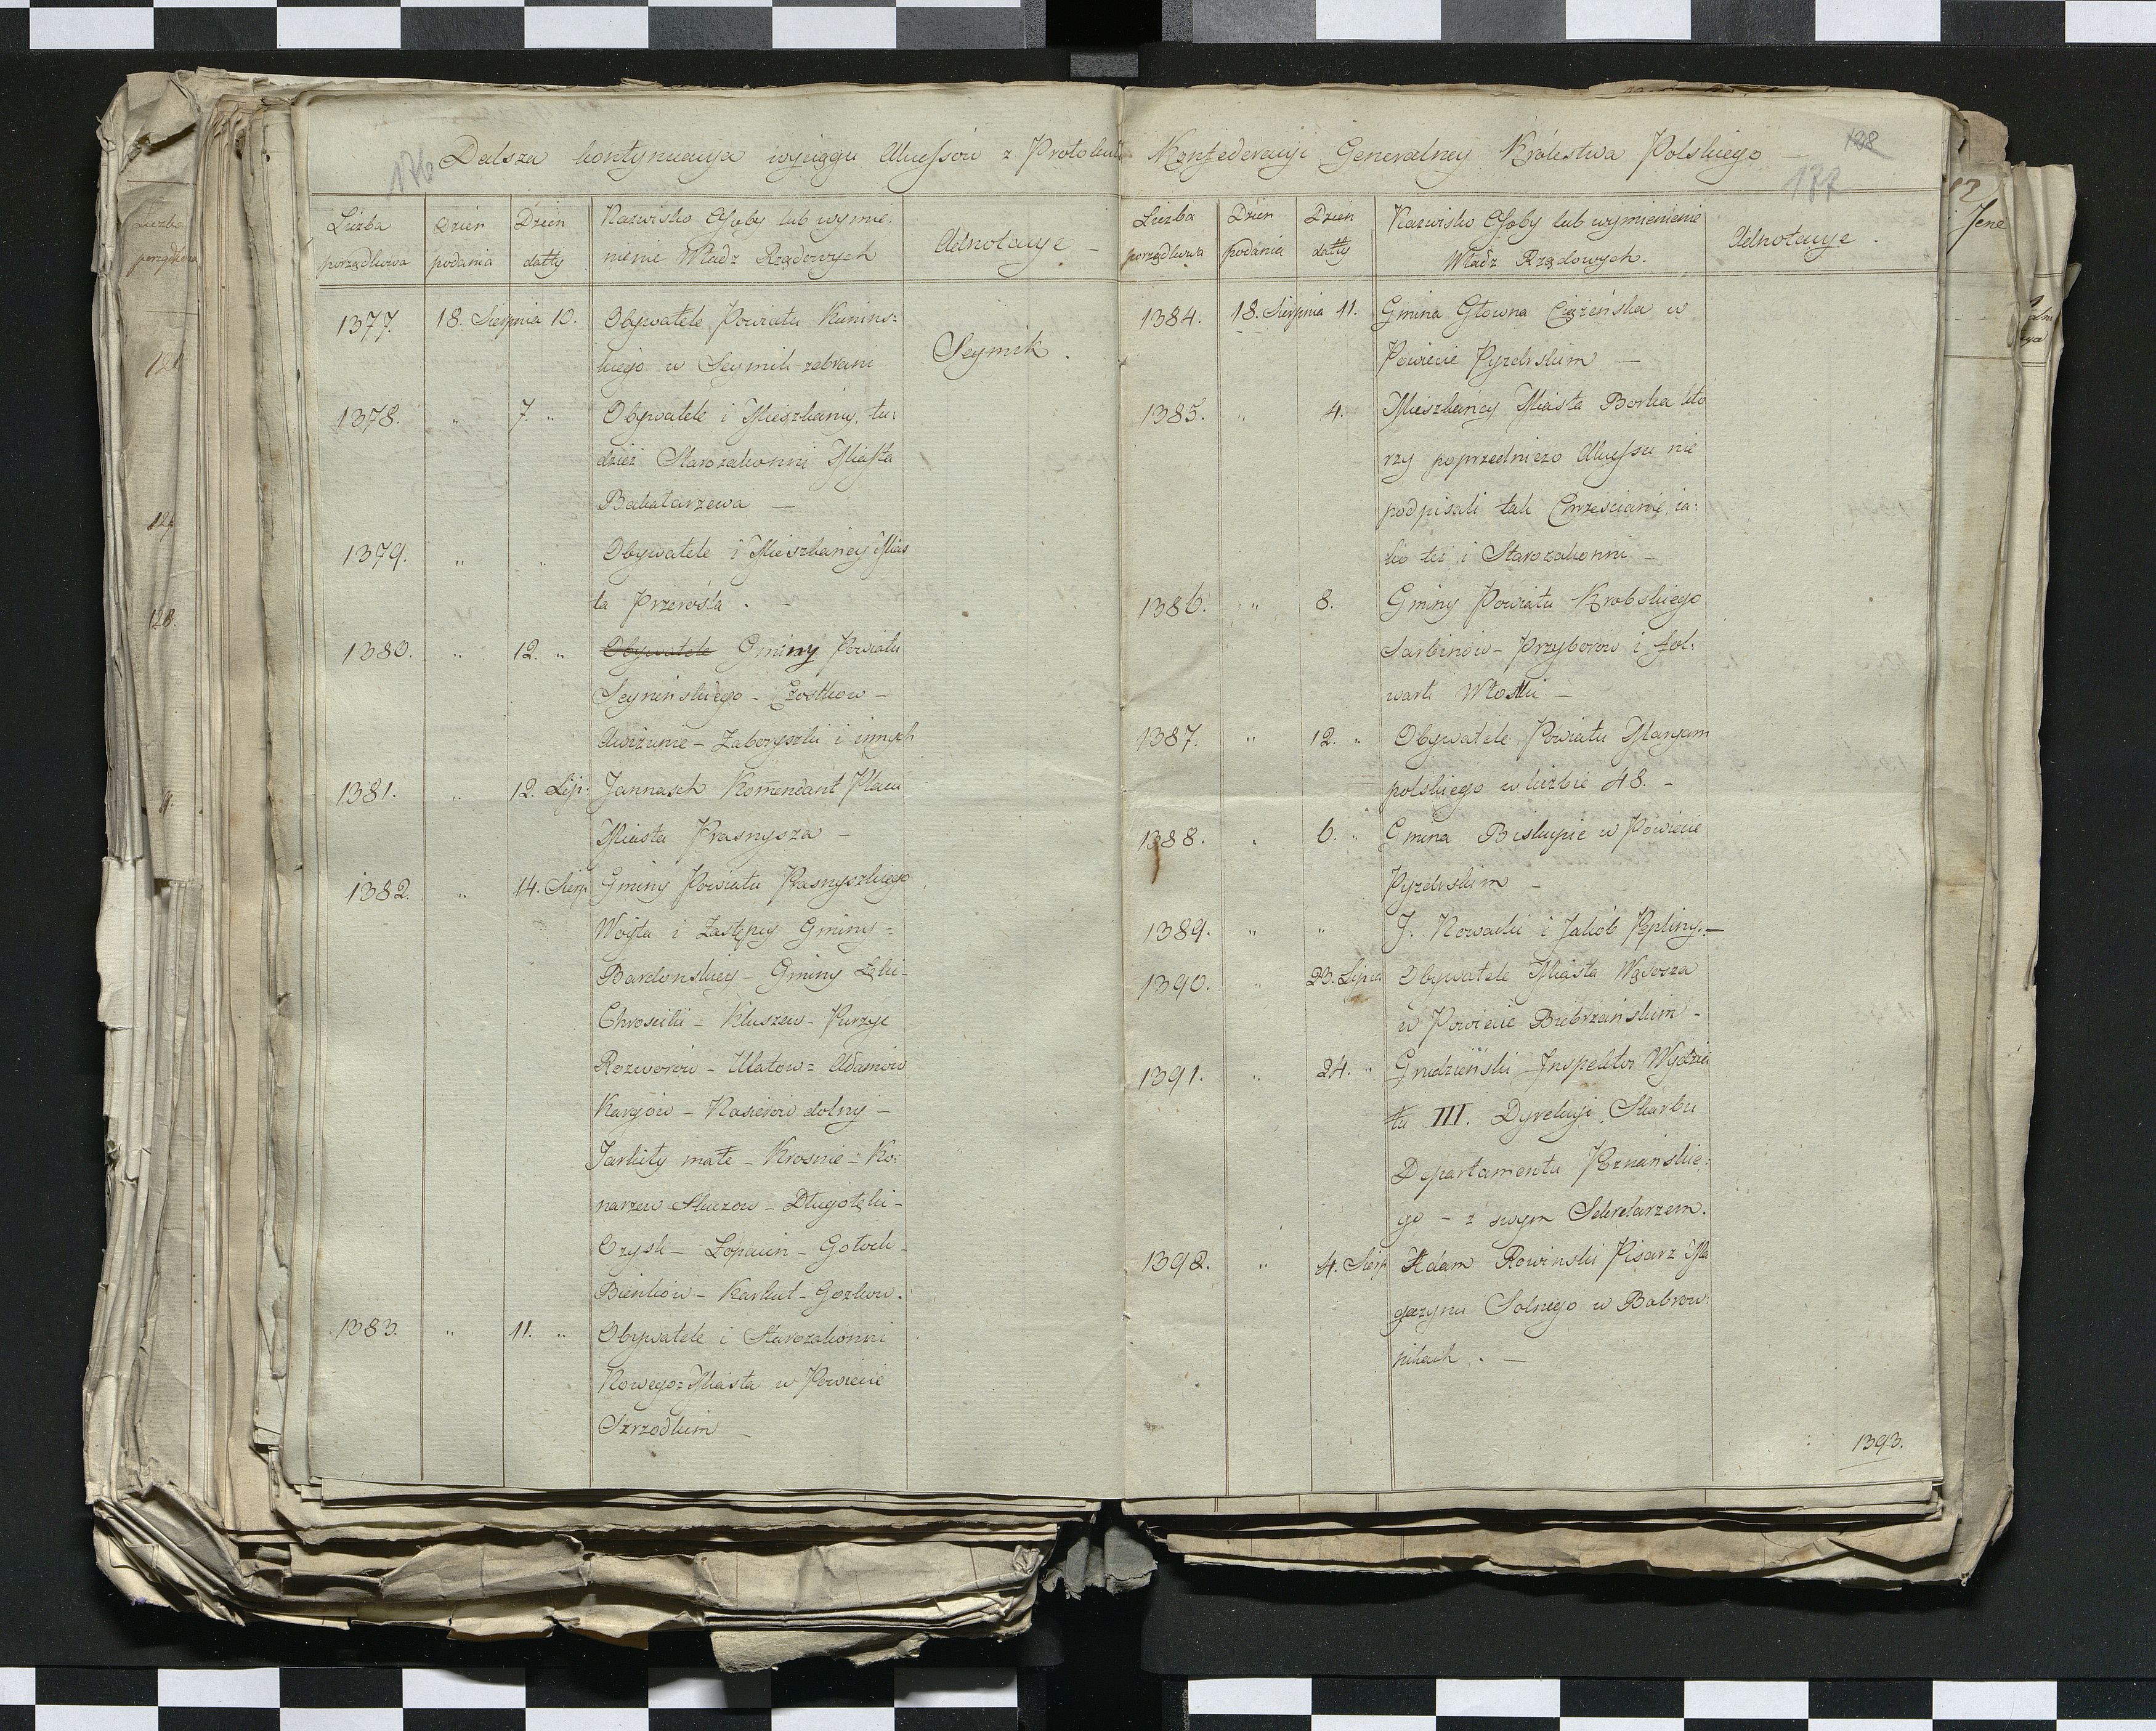 176
Dalsza kontynuacya wyciągu Akcessów z Protokułu
Liczba porządkowa
Dzień podania
Dzień datty
Nazwisko Osoby lub wymie-
nienie Władz Rządowych
Adnotacye –
1377. 18. Sierpnia 10. Obywatele Powiatu Konins=
kiego w Seymik zebrani
Seymik.
1378. " 7. " Obywatele i Mieszkańcy, tu=
dzież Starozakonni Miasta
Bakałarzewa —
1379. " " Obywatele i Mieszkańcy Mias
ta Przerośla. –
1380. " 12. " Obywatele Gminy Powiatu
Seyneńskiego –
– Zaboryszki i innych
1381. " 12. Lip: Jannasch Komendant Placu
Miasta Prasnysza –
1382. " 14. Sierp Gminy Powiatu Prasnyskiego
Woyta i Zastępcy Gminy =
– Gminy
– Kluszew –
– Ulatow = Adamów
– dolny –
małe – Krosnie – Ko:
narzew – Długołęki –
Czysk – Łopacin –
– Karkut –
1383. " 11. " Obywatele i Starozakonni
Nowego = Miasta w Powiecie
Szrzodkim –
Konfederacyi Generalney Królestwa Polskiego —
188
177
Liczba porządkowa
Dzień podania
Dzień datty
Nazwisko Osoby lub wymienienie
Władz Rządowych.
Adnotacye.
1384. 18. Sierpnia 11. Gmina Głowna Ciążeńska w
Powiecie Pyzdrskim —
1385. " 4. Mieszkańcy Miasta Borka któ
rzy poprzedniczo Akcessu nie
podpisali tak Chrześcianie, ia=
ko też i Starozakonni –
1386. " 8. Gminy Powiatu Krobskiego
Sarbinów – Przyborow i fol=
wark Włostki –
1387. " 12. " Obywatele Powiatu Maryam
polskiego w liczbie 48. –
1388. " 6. " Gmina Biskupie w Powiecie
Pyzdrskim –
1389. " " J: Nowacki i Jakób –
1390. " 23. Lipca Obywatele Miasta Wąsosza
w Powiecie Biebrzańskim –
1391. " 24. " Grudzieński Inspektor Wydzia
łu III. Dyrekcyi Skarbu
Departamentu Poznańskie=
go – z swym Sekretarzem.
1392. " 4. Sierp Adam Rowinski Pisarz Ma
gazynu Solnego w Bobrow=
nikach. —
1393.